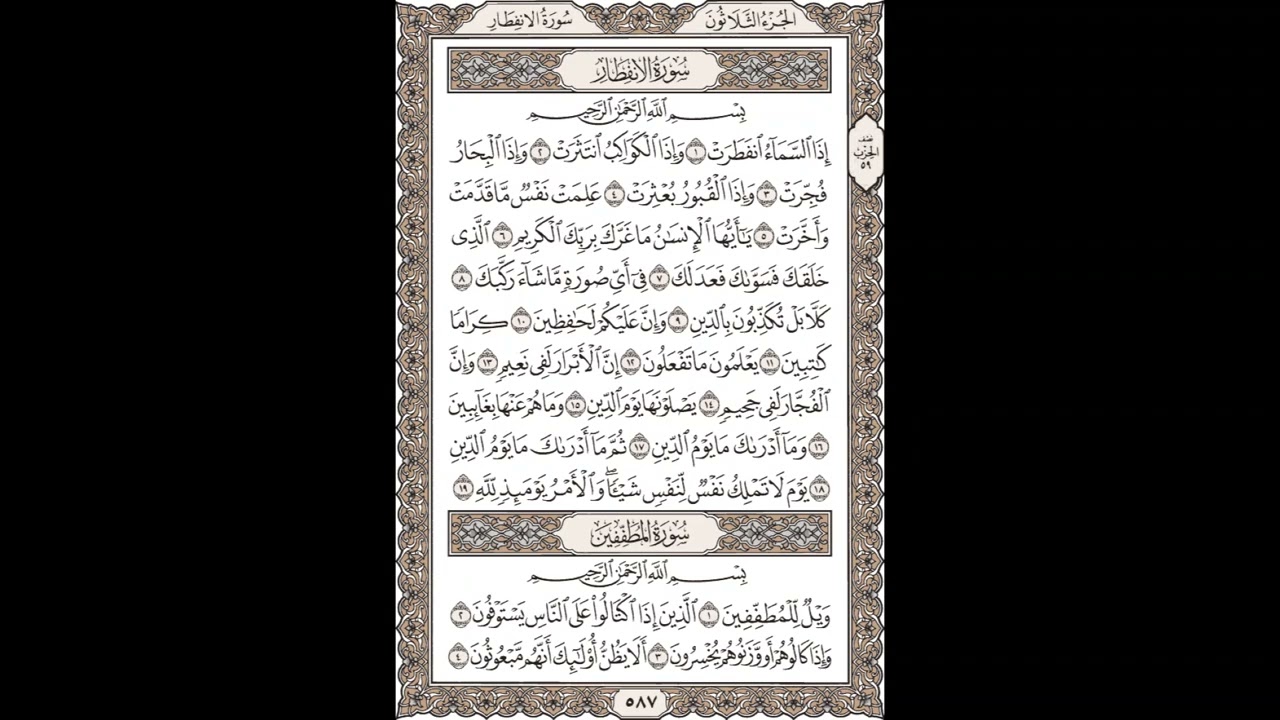 الجزء الثلاثون
سورة الانفطار
سُورَةُ الِانفِطَارِ
بِسْمِ ٱللَّهِ ٱلرَّحْمَٰنِ ٱلرَّحِيمِ
إِذَا ٱلسَّمَآءُ ٱنفَطَرَتْ ١ وَإِذَا ٱلْكَوَاكِبُ ٱنتَثَرَتْ ٢ وَإِذَا ٱلْبِحَارُ
فُجِّرَتْ ٣ وَإِذَا ٱلْقُبُورُ بُعْثِرَتْ ٤ عَلِمَتْ نَفْسٌ مَّا قَدَّمَتْ
وَأَخَّرَتْ ٥ يَٰٓأَيُّهَا ٱلْإِنسَٰنُ مَا غَرَّكَ بِرَبِّكَ ٱلْكَرِيمِ ٦ ٱلَّذِى
خَلَقَكَ فَسَوَّىٰكَ فَعَدَلَكَ ٧ فِىٓ أَىِّ صُورَةٍ مَّا شَآءَ رَكَّبَكَ ٨
كَلَّا بَلْ تُكَذِّبُونَ بِٱلدِّينِ ٩ وَإِنَّ عَلَيْكُمْ لَحَٰفِظِينَ ١٠ كِرَامًا
كَٰتِبِينَ ١١ يَعْلَمُونَ مَا تَفْعَلُونَ ١٢ إِنَّ ٱلْأَبْرَارَ لَفِى نَعِيمٍ ١٣ وَإِنَّ
ٱلْفُجَّارَ لَفِى جَحِيمٍ ١٤ يَصْلَوْنَهَا يَوْمَ ٱلدِّينِ ١٥ وَمَا هُمْ عَنْهَا بِغَآئِبِينَ
١٦ وَمَآ أَدْرَىٰكَ مَا يَوْمُ ٱلدِّينِ ١٧ ثُمَّ مَآ أَدْرَىٰكَ مَا يَوْمُ ٱلدِّينِ
١٨ يَوْمَ لَا تَمْلِكُ نَفْسٌ لِّنَفْسٍ شَيْـًٔا ۖ وَٱلْأَمْرُ يَوْمَئِذٍ لِّلَّهِ ١٩
سُورَةُ المُطَفِّفِينَ
بِسْمِ ٱللَّهِ ٱلرَّحْمَٰنِ ٱلرَّحِيمِ
وَيْلٌ لِّلْمُطَفِّفِينَ ١ ٱلَّذِينَ إِذَا ٱكْتَالُوا۟ عَلَى ٱلنَّاسِ يَسْتَوْفُونَ ٢
وَإِذَا كَالُوهُمْ أَو وَّزَنُوهُمْ يُخْسِرُونَ ٣ أَلَا يَظُنُّ أُو۟لَٰٓئِكَ أَنَّهُم مَّبْعُوثُونَ ٤
نصف
الحزب
٥٩
٥٨٧